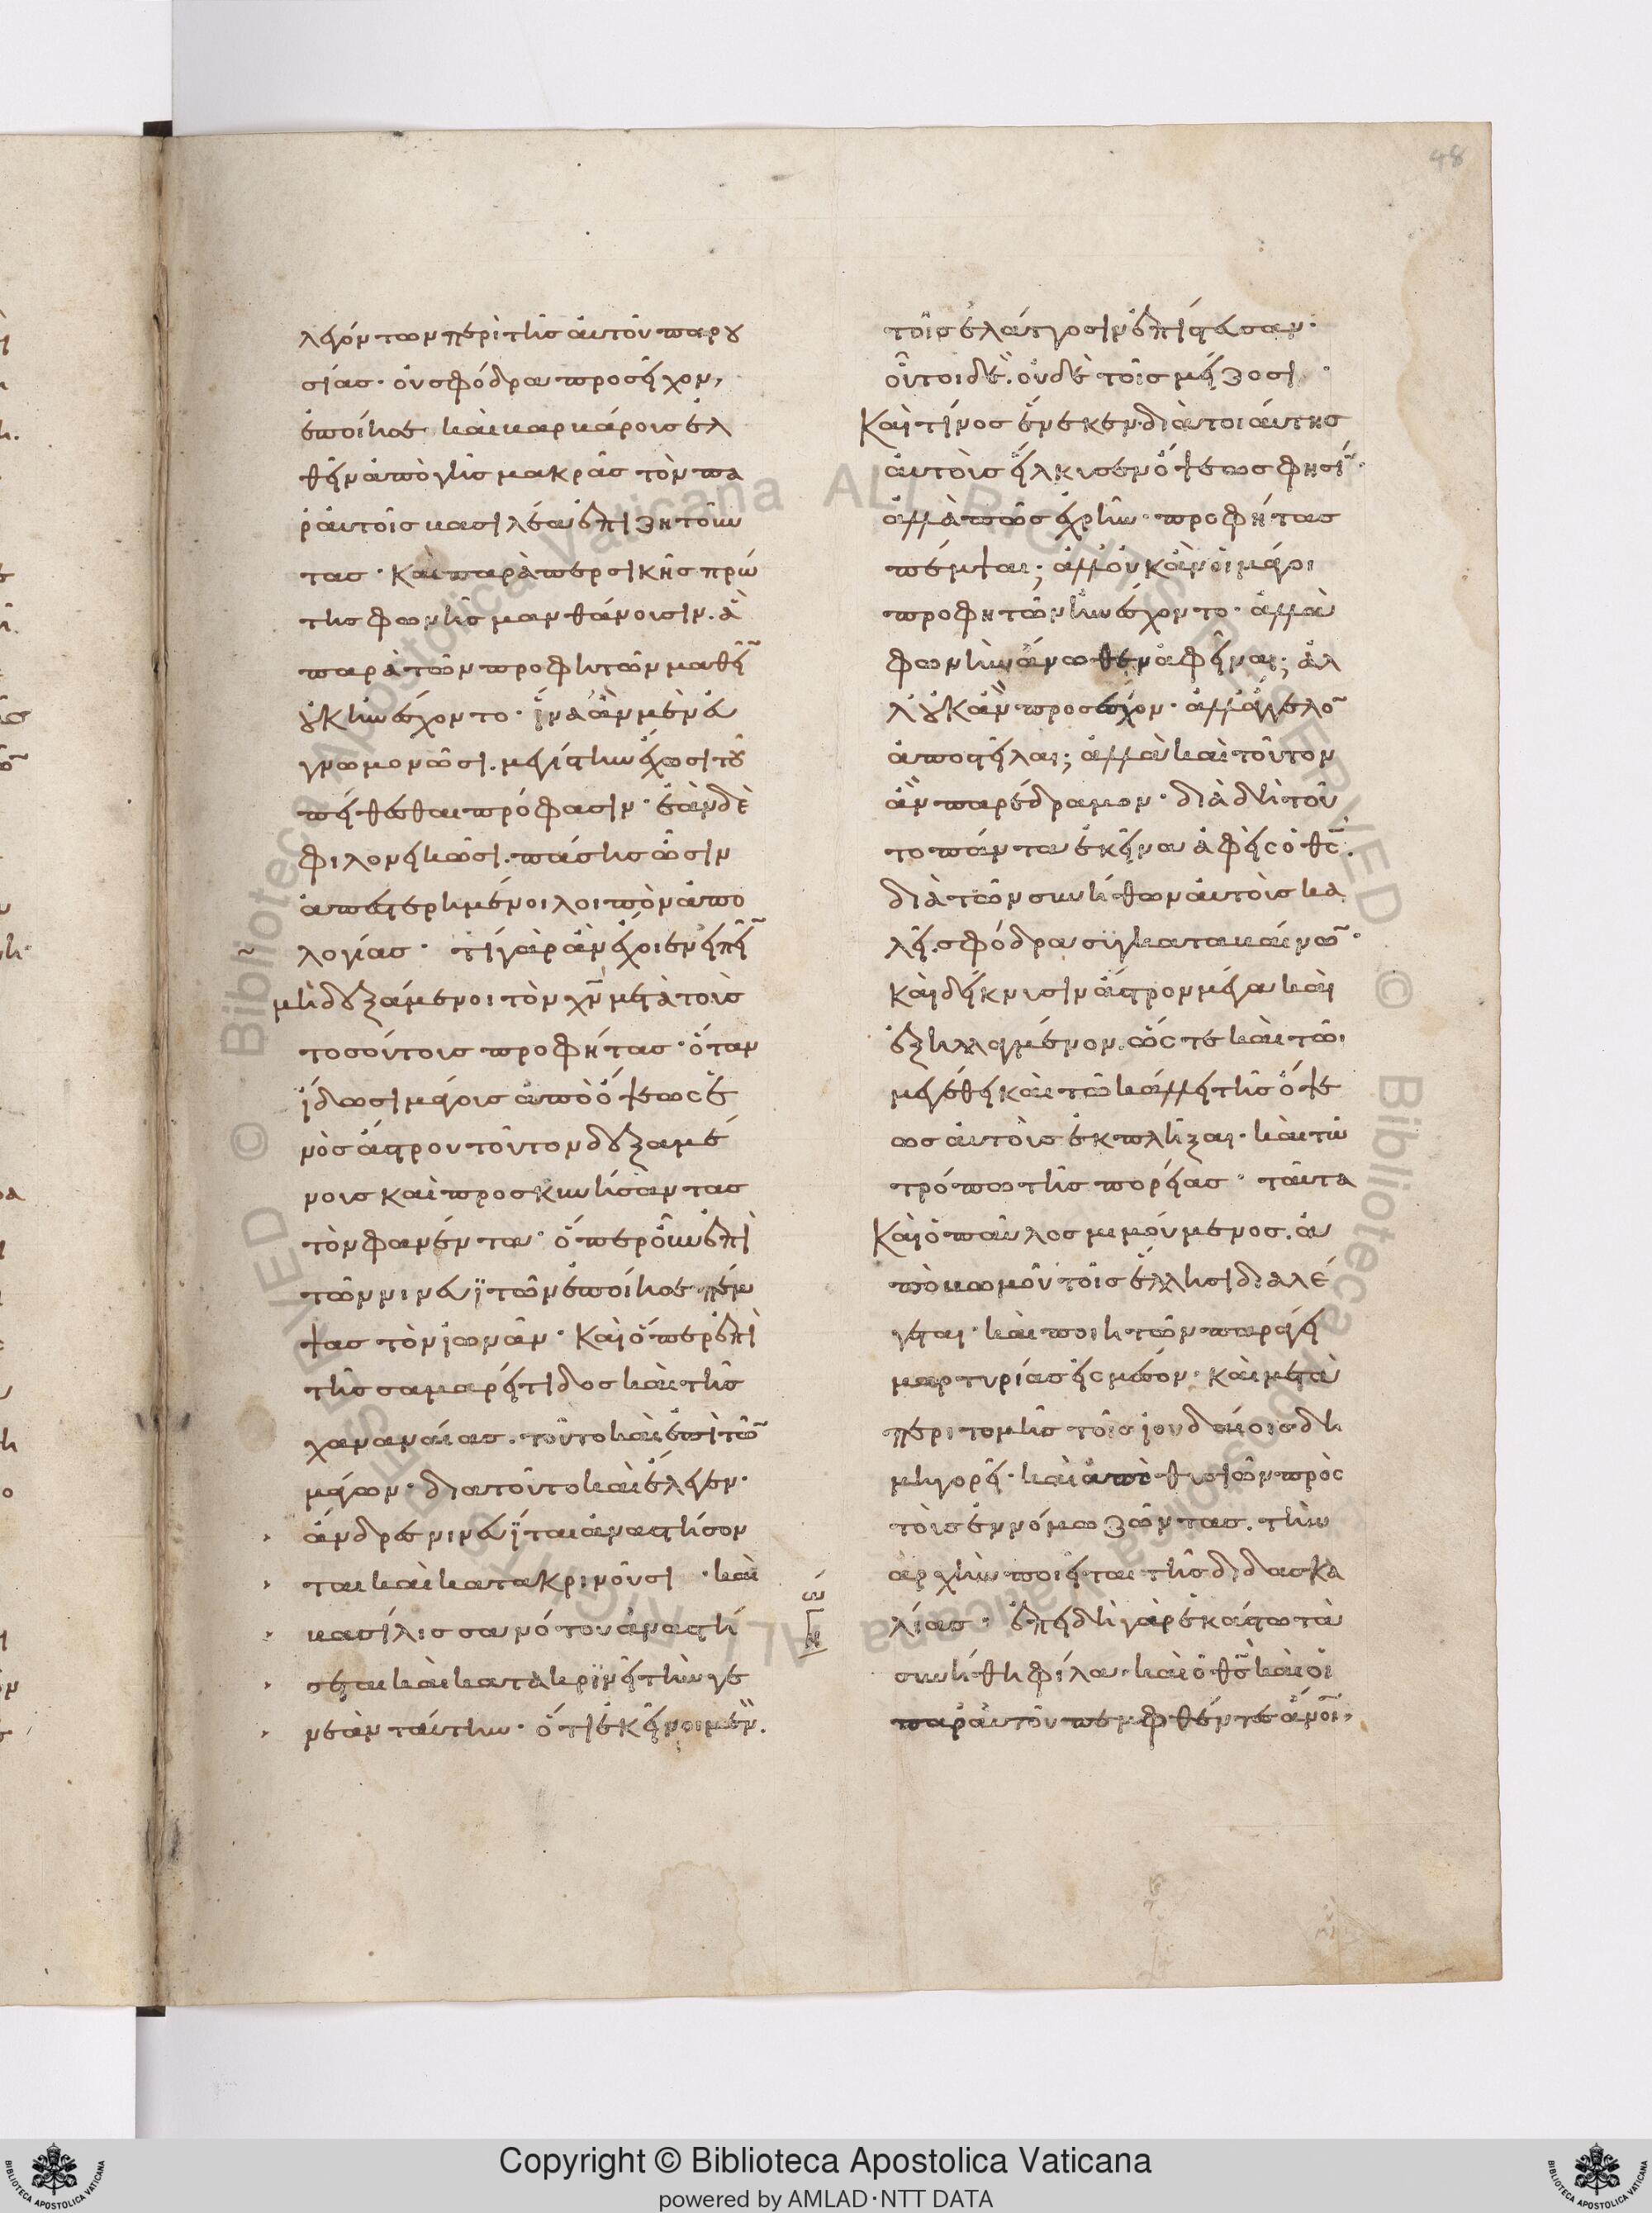 48
λεγόντων περὶ τῆς αὐτοῦ παρου
σίας· οὐ σφόδρα προσεῖχον,
ἐποίησε καὶ βαρβάρους ἐλ
θεῖν ἀπὸ γῆς μακρᾶς τὸν πα
ρ' αὐτοῖς βασιλέα ἐπιζητοῦν
τας· καὶ παρὰ περσικῆς πρώ
της φωνῆς μανθάνουσιν. ἃ
παρὰ τῶν προφητῶν μαθεῖ̄
οὐκ ἠνέσχοντο· ἵνα ἂν μὲν εὐ
γνωμονῶσι. μεγίστην ἔχωσι τοῦ
πείθεσθαι πρόφασιν· ἐὰν δὲ
φιλονεικῶσι. πάσης ὦσιν
ἀπεστερημένοι λοιπὸν ἀπο
λογίας· τί γὰρ ἂν ἔχοιεν εἰπεῖ̄
μὴ δεξάμενοι τὸν χ̄ν μετὰ τοὺς
τοσούτους προφήτας· ὅταν
ἴδωσι μάγους ἀπὸ ὄψεως ἑ
νὸς ἄστρου τοῦτον δεξαμέ
νους καὶ προσκυνήσαντας
τὸν φανέντα· ὅπερ οὖν ἐπὶ
τῶν νινευϊτῶν ἐποίησε πέμ
ψας τὸν ἰωνᾶν· καὶ ὅπερ ἐπὶ
τῆς σαμαρείτιδος καὶ τῆς
χαναναίας. τοῦτο καὶ ἐπὶ τῶ̄
μάγων· διὰ τοῦτο καὶ ἔλεγεν·
ἄνδρες νινευῖται ἀναστήσον
ται καὶ κατακρινοῦσι· καὶ
βασίλισσα νότου ἀναστή
σεται καὶ κατακρινεῖ τὴν γε
νεὰν ταύτην· ὅτι ἐκεῖνοι μὲν.
τοῖς ἐλάττοσιν ἐπίστευσαν·
οὗτοι δὲ. οὐδὲ τοῖς μείζοσι·
Καὶ τίνος ἕνεκεν διὰ τοιαύτης
αὐτοὺς εἵλκυσεν ὄψεως φησί̄·
ἀλλὰ πῶς ἐχρῆν· προφήτας
πέμψαι; ἀλλ' οὐκ ἂν οἱ μάγοι
προφητῶν ἠνέσχοντο· ἀλλὰ
φωνὴν ἄνωθεν ἀφεῖναι; ἀλ
λ' οὐκ ἂν προσέσχον· ἀλλ' ἄγγελο̄
ἀποστεῖλαι; ἀλλὰ καὶ τοῦτον
ἂν παρέδραμον· διὰ δὴ τοῦ
το πάντα ἐκεῖνα ἀφεὶς ὁ θ̄ς.
διὰ τῶν συνήθων αὐτοὺς κα
λεῖ. σφόδρα συγκαταβαίνω̄·
καὶ δείκνυσιν ἄστρον μέγα καὶ
ἐξηλλαγμένον. ὥς τε καὶ τῶι
μεγέθει καὶ τῶ κάλλει τῆς ὄψε
ως αὐτοὺς ἐκπλῆξαι· καὶ τῶ
τρόπω τῆς πορείας· ταῦτα
Καὶ ὁ παῦλος μιμούμενος. ἀ
πὸ βωμοῦ τοῖς ἕλλησι διαλέ
γεται· καὶ ποιητῶν παράγει
μαρτυρίας εἰς μέσον· καὶ μετὰ
περιτομῆς τοῖς ἰουδαίοις δη
μηγορεῖ· καὶ ἀπὸ θυσιῶν πρὸς
τοὺς ἐν νόμω ζῶντας. τὴν
ἀρχὴν ποιεῖται τῆς διδασκα
λίας· ἐπειδὴ γὰρ ἑκάστω τὰ
συνήθη φίλα. καὶ ὁ θ̄ς καὶ οἱ
παρ' αὐτοῦ πεμφθέντες ἄνοι,
Copyright © Biblioteca Apostolica Vaticana
powered by AMLAD·NTT DATA